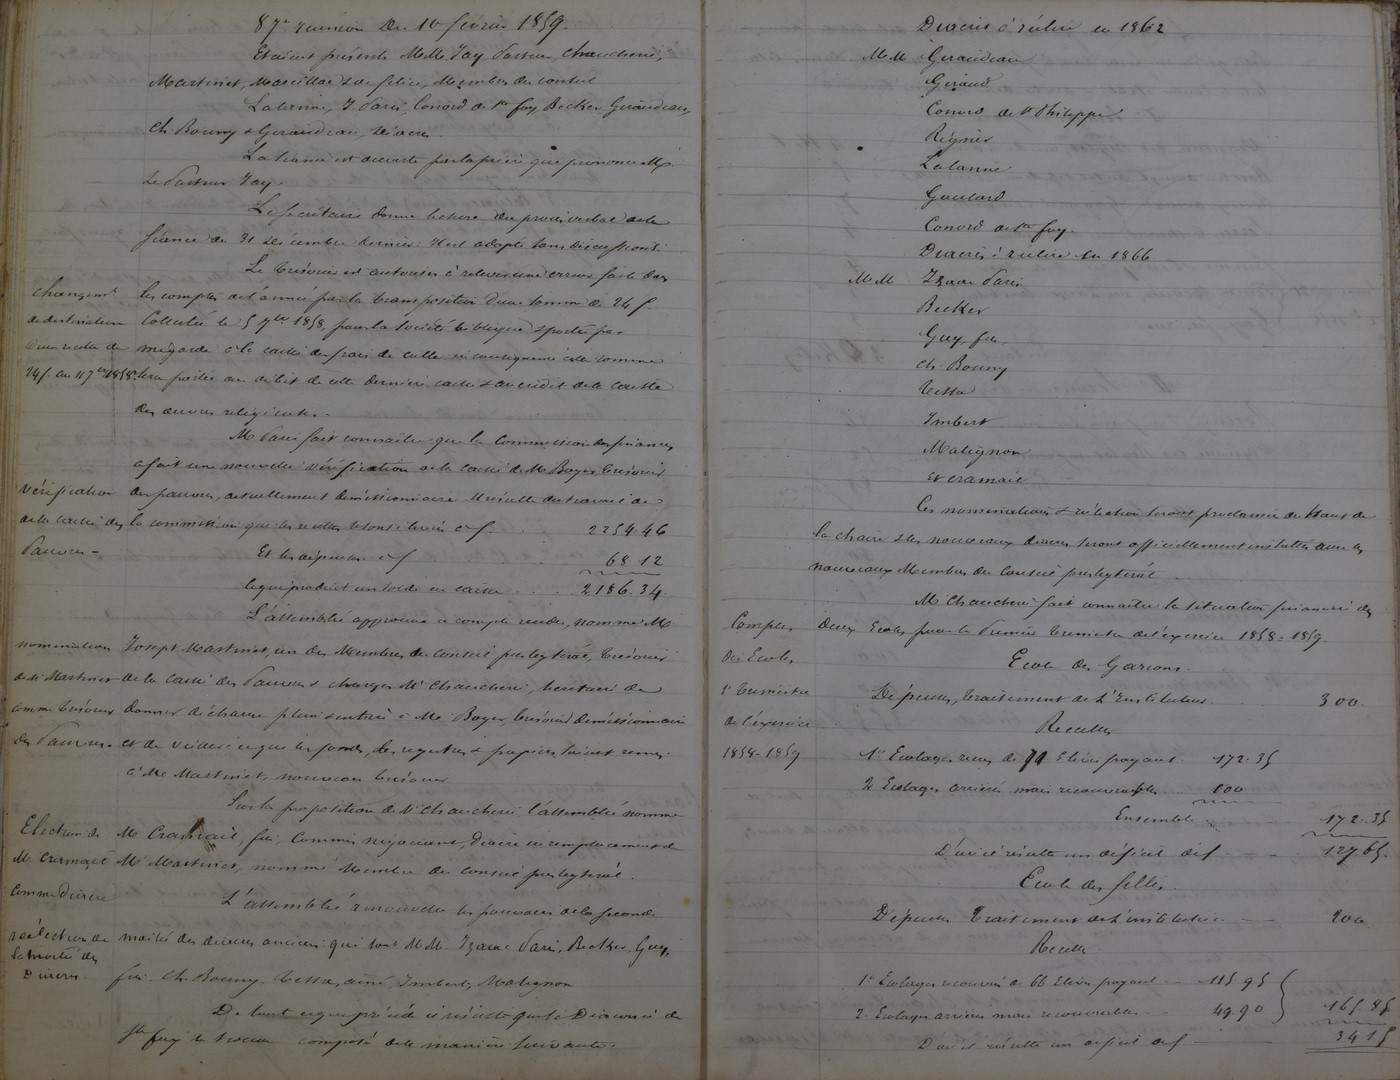 87e réunion du 10 février 1859.
Etaient présents MM. Jay Pasteur, Chaucherie,
Martinet, Marcillac & de Felice, Membres du Conseil
Lalanne, I. Paris, Conord de Ste foy, Becker, Geraudeau,
Ch. Bouny & Geraudeau, Diacres.
La séance est ouverte par la prière que prononce M.
Le Pasteur Jay.
Le Secrétaire donne lecture du procès verbal de la
Séance du 31 Décembre dernier. Il est adopté sans discussion.
Le Trésorier est autorisé à relever une erreur faite dans
les comptes de l'année par la transposition d'une somme de 24 f.
Collectée le 5 7bre 1858, pour la Société biblique & portée par
mégarde à la caisse des frais de culte en conséquence cette somme
sera portée au débit de cette dernière caisse & au crédit de la caisse
des œuvres religieuses.
changemt
de destination
d'une recette de
24 f. du 7bre 1858
M. Paris fait connaître que la Commission des finances
a fait une nouvelle vérification de la caisse de M. Boyer, trésorier
des pauvres, actuellement démissionnaire. Il résulte du travail de
la commission que les recettes se sont élevées à f. 2254.46
Et les dépenses à f. 68.12
Ce qui produit un solde en caisse 2186.34
vérification
de la caisse des
Pauvres
L'assemblée approuve ce compte rendu, nomme M.
Joseph Martinet, un des Membres du Conseil presbytéral, trésorier
de la caisse des Pauvres & charge M. Chaucherie, Secrétaire de
donner décharge pleine & entière à M. Boyer, trésorier démissionnaire
et de veiller à ce que les fonds, les registres & papiers soient remis
à M. Martinet, nouveau trésorier.
nomination
de M. Martinet
comme trésorier
des Pauvres
Sur la proposition de M. Chaucherie l'assemblée nomme
M. Cramail, fils, Commis négociant, Diacre en remplacement de
M. Martinet, nommé Membre du Conseil presbytéral.
Election de
M. Cramail
comme Diacre
L'assemblée renouvelle les pouvoirs de la seconde
moitié des diacres anciens qui sont MM. Izaac Paris, Becker, Guy,
fils, Ch. Bouny, Tessa, ainé, Imbert, Matignon
réélection de
la moitié des
Diacres
De tout ce qui précède il résulte que le Diaconat de
Ste foy se trouve composé de la manière suivante.
Diacres à réélire en 1862
MM. Geraudeau
Geraud
Conord de St Philippe
Régnier
Lalanne
Goulard
Conord de Ste foy.
Diacres à réélire en 1866
MM. Izaac Paris
Becker
Guy, fils
Ch. Bouny
Tessa
Imbert
Matignon
Et Cramail
Ces nominations & réélection seront proclamées du haut de
la chaire & les nouveaux diacres seront officiellement installés avec les
nouveaux Membres du Conseil presbytéral.
M. Chaucherie fait connaître la situation financière des
deux Ecoles pour le premier trimestre de l'exercice 1858-1859.
Comptes
des Ecoles
1er trimestre
de l'exercice
1858-1859
Ecole des Garçons.
Dépenses, traitement de l'Instituteur 300
Recettes
1° Ecolages reçus de 71 Elèves payant 172.35
2° Ecolages arriérés mais recouvrables 000
Ensemble 172.35
D'où il résulte un déficit de f 127.65
Ecole des filles.
Dépenses Traitement de l'institutrice 200
Recettes
1° Ecolages recouvrés de 66 Elèves payant 115.95
2° Ecolages arriérés mais recouvrables 49.90
165.85
D'où il résulte un déficit de f 34.15